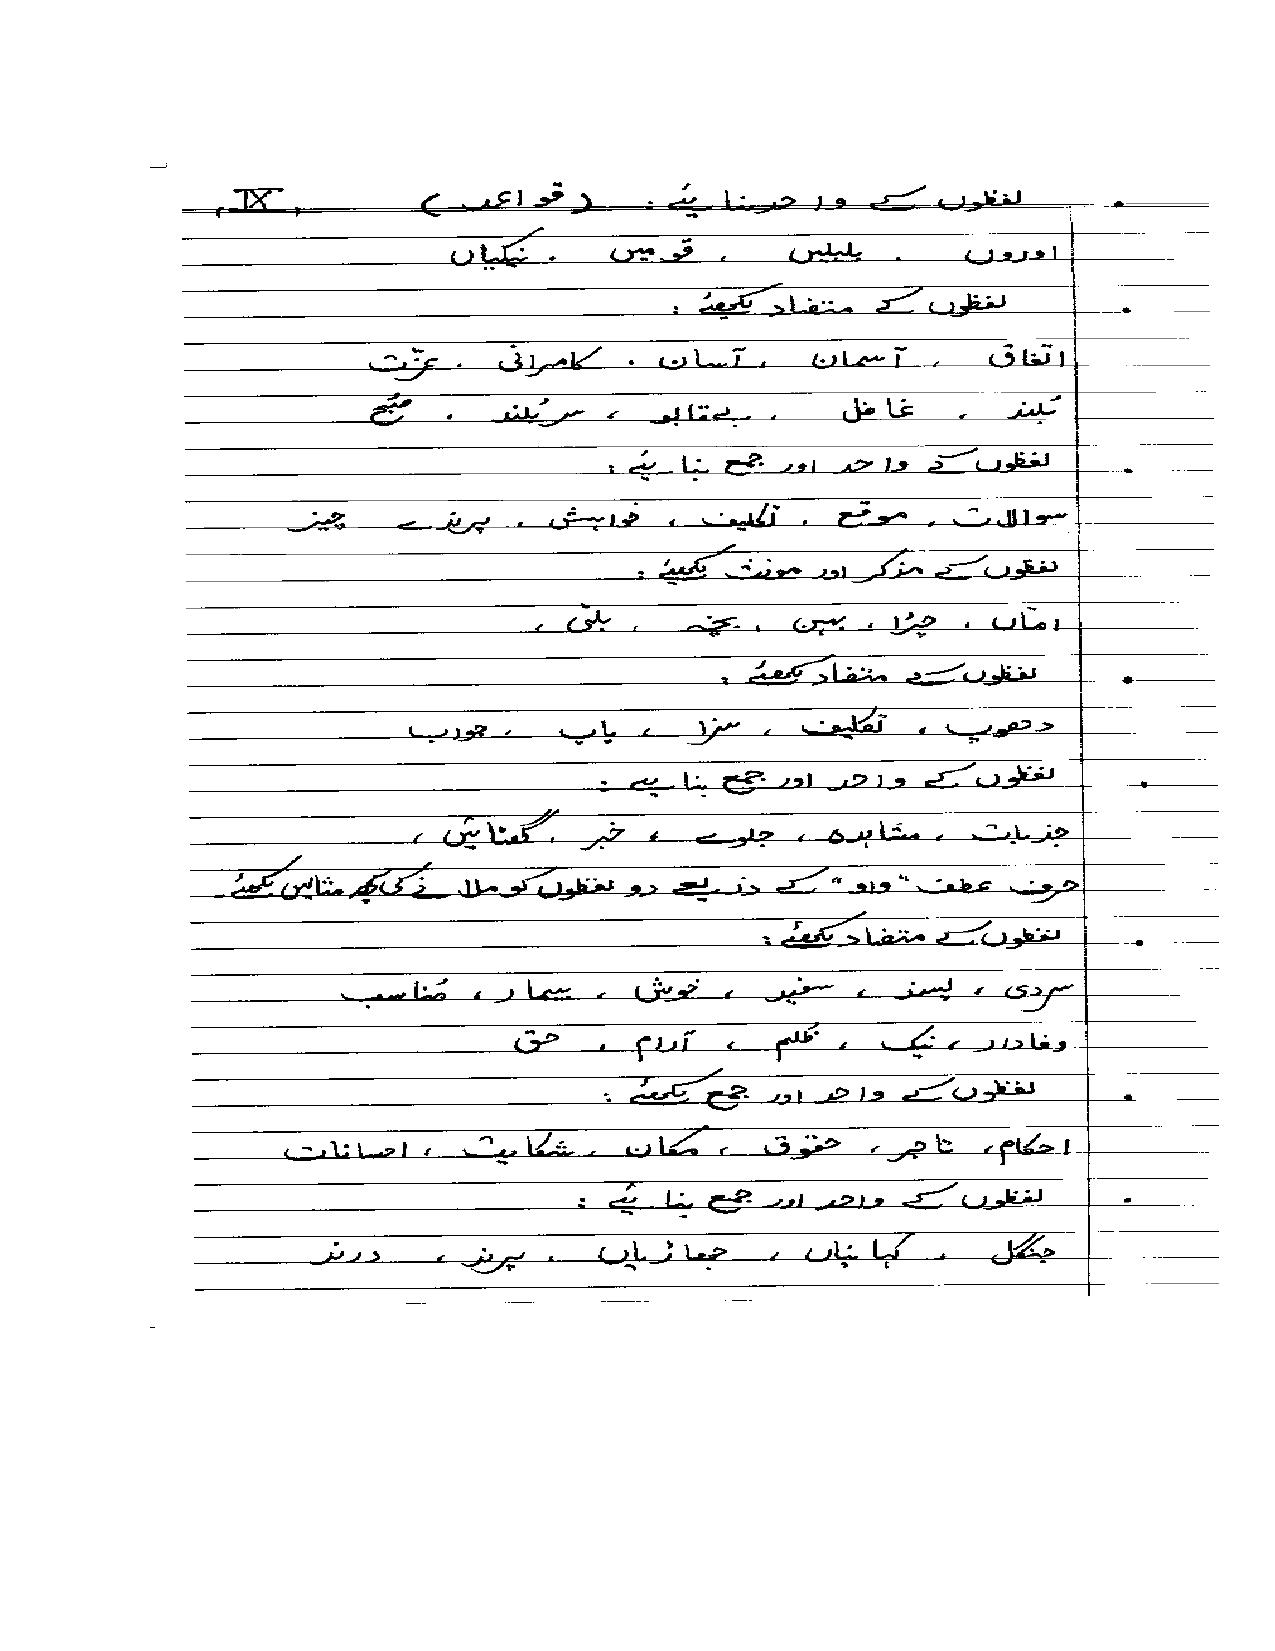 لفظوں کے واحد بنایئے : (قواعد) IX
اوروں ، بلبلیں ، قومیں ، نیکیاں
لفظوں کے متضاد لکھئے :
اتّفاق ، آسمان ، آسان ، کامرانی ، عزّت
بُلند ، غافل ، بے قابو ، سربُلند ، صُبح
لفظوں کے واحد اور جمع بنایئے :
سوالات ، موقع ، تکلیف ، خواہش ، پرندے چیز
لفظوں کے مذکر اور مونث لکھیئے :
امّاں ، چڑا ، بہن ، بچّہ ، بلّی ،
لفظوں کے متضاد لکھئے :
دھوپ ، تکلیف ، سزا ، باپ ، جواب
لفظوں کے واحد اور جمع بنایئے :
جذبات ، مشاہدہ ، جلوے ، خبر ، گھٹائیں ،
حرف عطف "واو" کے ذریعے دو لفظوں کو ملانے کی کچھ مثالیں لکھئے
لفظوں کے متضاد لکھئے :
سردی ، پسند ، سفید ، خوش ، بیمار ، مُناسب
وفادار ، نیک ، ظلم ، آرام ، حق
لفظوں کے واحد اور جمع لکھئے :
احکام ، تاجر ، حقوق ، مکان ، شکایت ، احسانات
لفظوں کے واحد اور جمع بنایئے :
جنگل ، کہانیاں ، جھاڑیاں ، پرند ، درند